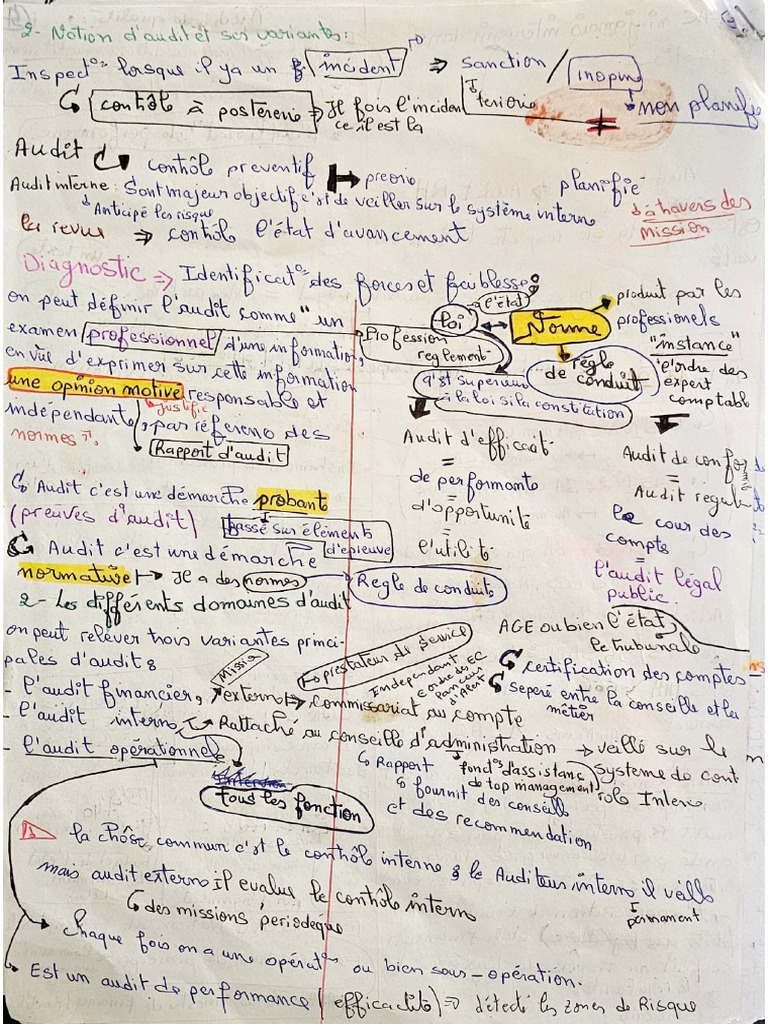 2- Notion d'audit et ses variantes:
Inspect° lorsque il ya un incident ⇒ sanction / inopiné
contrôle à postererie ⇒ Il fois l'incident teriorie non planifie
ce il est la
Audit contrôle preventif planifié
Audit interne: Sont majeur objectif c'est de veiller sur le système interne à travers des
Anticipé les risque mission
la revue ⇒ contrôle l'état d'avancement
Diagnostic ⇒ Identificat° des forces et faiblesse
on peut définir l'audit comme "un
examen professionnel d'une information,
en vue d'exprimer sur cette information
une opinion motivé responsable et
justifié
indépendante, par référence des
normes".
Rapport d'audit
loi l'état Norme
produit par les
professionels
"instance"
l'ordre des
expert
comptabl
Profession
reglement
règle
de conduit
q'est superieur
à la loi si la constitution
Audit d'efficacit
=
de performante
=
d'opportunité
=
l'utilité
Audit de confor
=
Audit regula
la cour des
compts
=
l'audit légal
public.
Audit c'est une démarche probant
(preuves d'audit) bassé sur éléments
d'épreuve
Audit c'est une démarche
normative Il a des normes Regle de conduite
2- Les différents domaines d'audit
on peut reléver trois variantes princi-
pales d'audit:
- l'audit financier, externe ⇒ commissariat au compte
Missia
prestateur de service
Independant
- l'audit interne Rattaché au conseille d'administration → veillé sur le
- l'audit opérationnel
système de cont
role Interne
Tous les fonction
Rapport
fonct° d'assistanc
de top management
fournit des conseils
et des recommendation
AGE ou bien l'état,
le tribunale
certification des comptes
seperé entre la conseille et le
métier
la chôse commun c'est le contrôle interne le Auditeur interne il veille
mais audit externe il evalue le contrôle interne
permanent
des missions périodéque
Chaque fois on a une opérat° ou bien sous-opération.
Est un audit de performance (efficacité) ⇒ détecté les zones de Risque